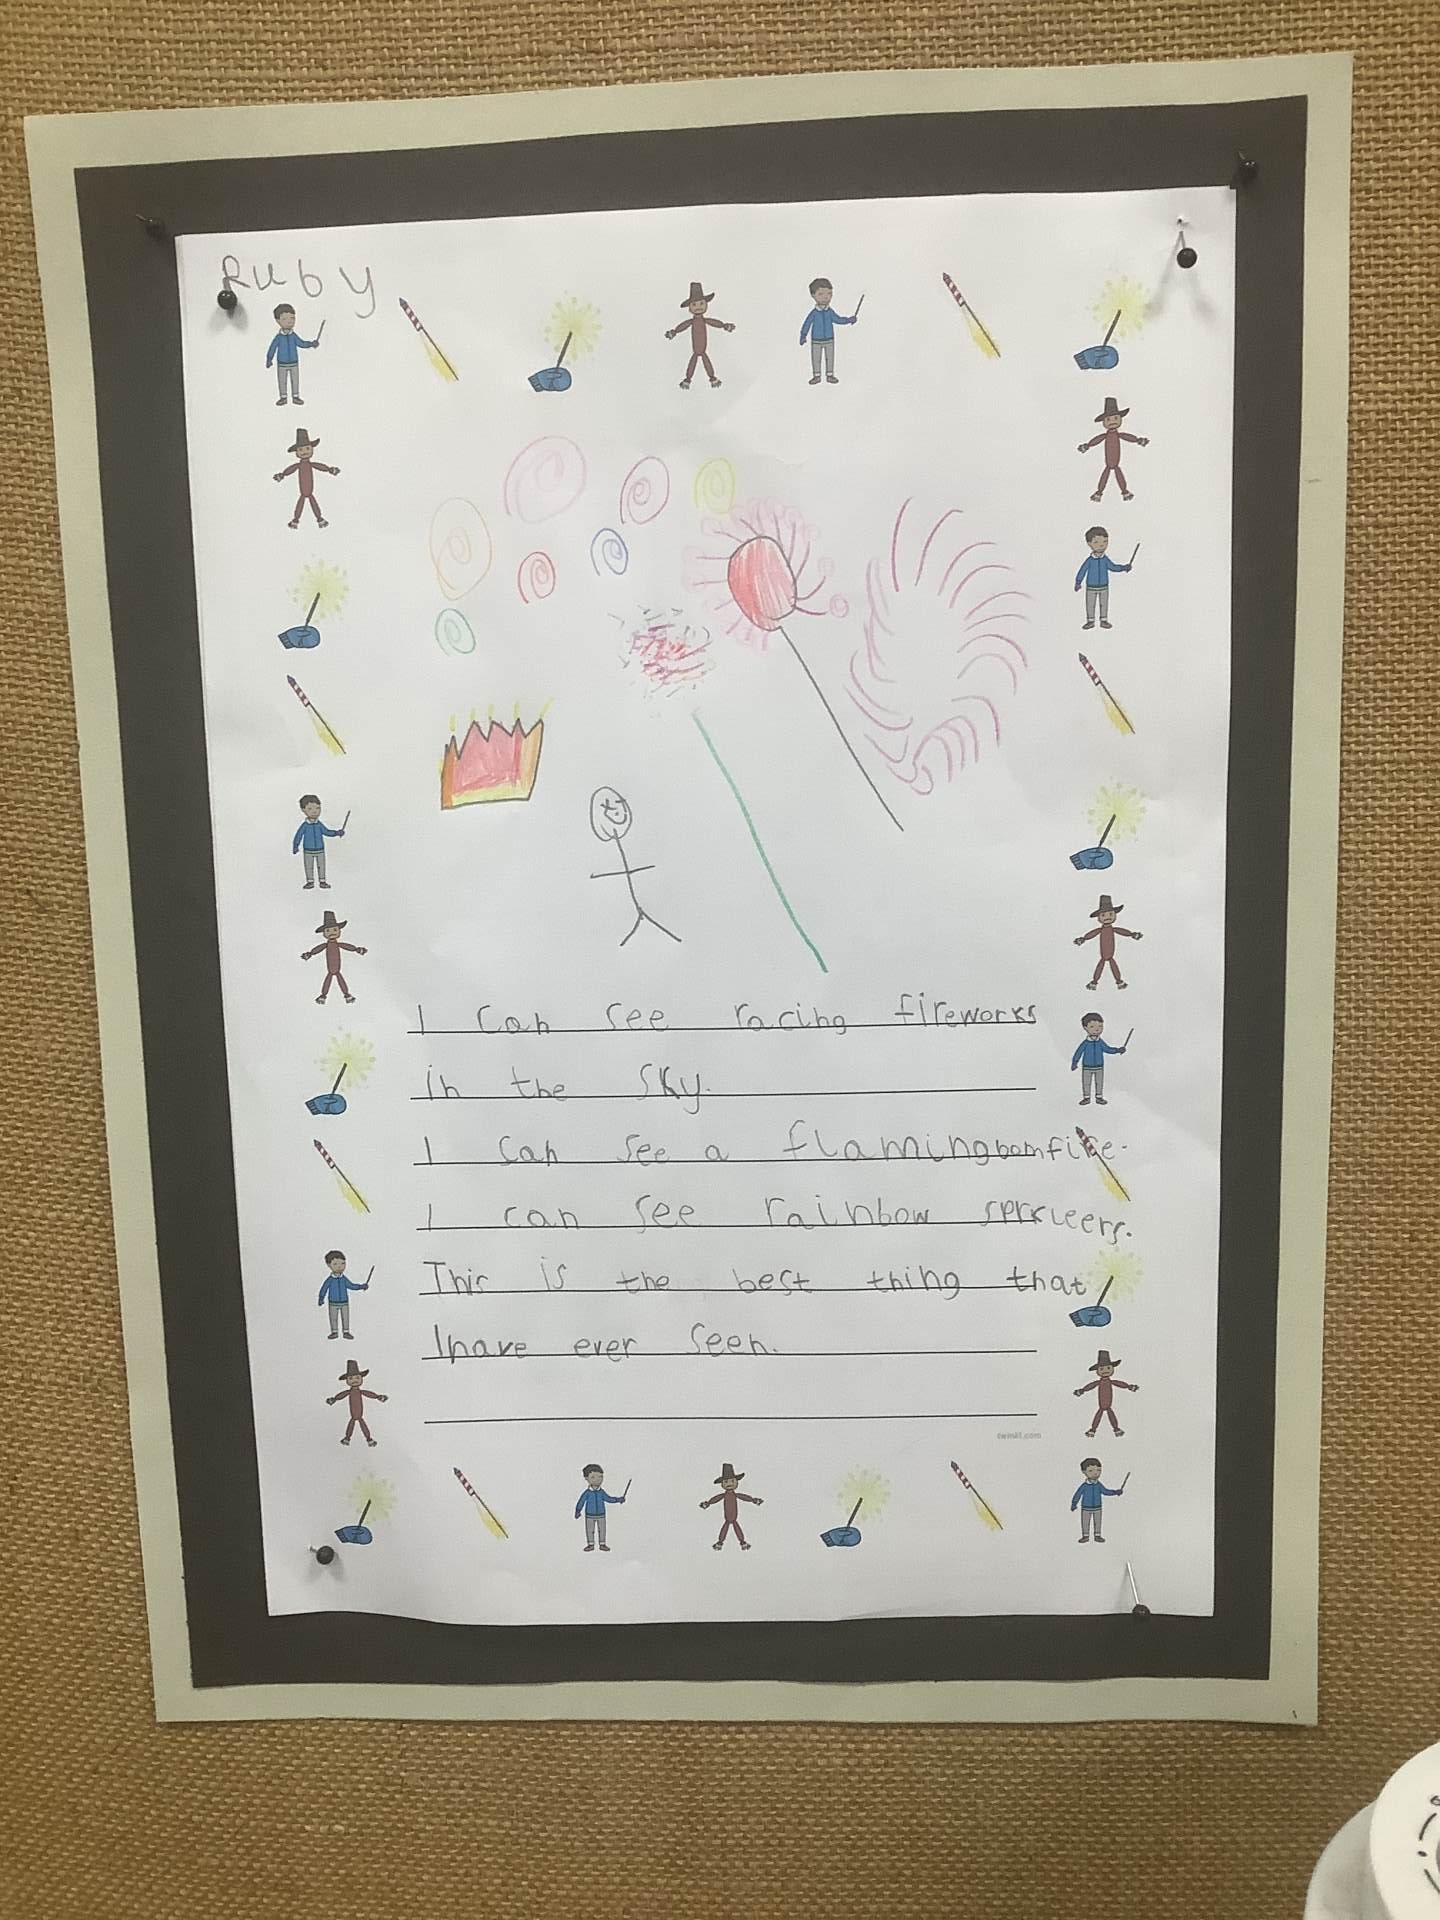 Ruby
I can see racing fireworks
in the sky.
I can see a flaming bomfire.
I can see rainbow sprkleers.
This is the best thing that
I have ever seen.
twinkl.com